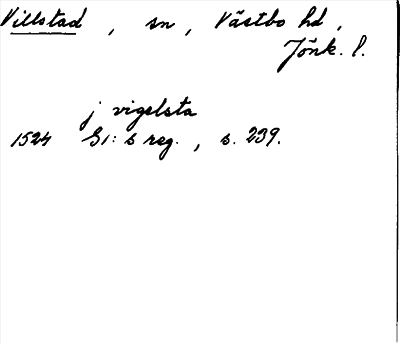 Villstad , sn , Västbo hd ,
Jönk. l.
j vigelsta
1524 G1:s reg. , s. 239.